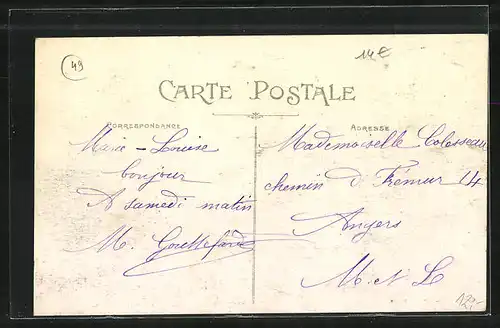 49
14€
CARTE POSTALE
CORRESPONDANCE
Marie-Louise
bonjour
A samedi matin
M.
ADRESSE
Mademoiselle Colasseau
chemin d. Frémur 14
Angers
M. et L
12,-